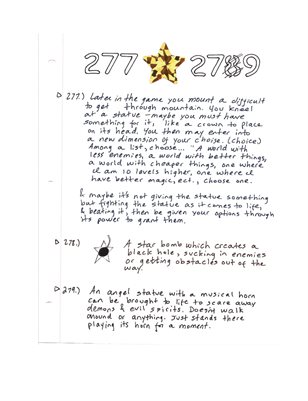 277 2789
277.) Later in the game you mount a difficult
to get through mountain. You kneel
at a statue - maybe you must have
something for it, like a crown to place
on its head. You then may enter into
a new dimension of your choise. (choice)
Among a list, choose... "A world with
less enemies, a world with better things,
a world with cheaper things, one where
I am 50 levels higher, one where I
have better magic, ect., choose one.
& maybe it's not giving the statue something
but fighting the statue as it comes to life,
& beating it, then be given your options through
its power to grant them.
278.) A star bomb which creates a
black hole, sucking in enemies
or getting obstacles out of the
way
279.) An angel statue with a musical horn
can be brought to life to scare away
demons & evil spirits. Doesnt walk
around or anything. Just stands there
playing its horn for a moment.